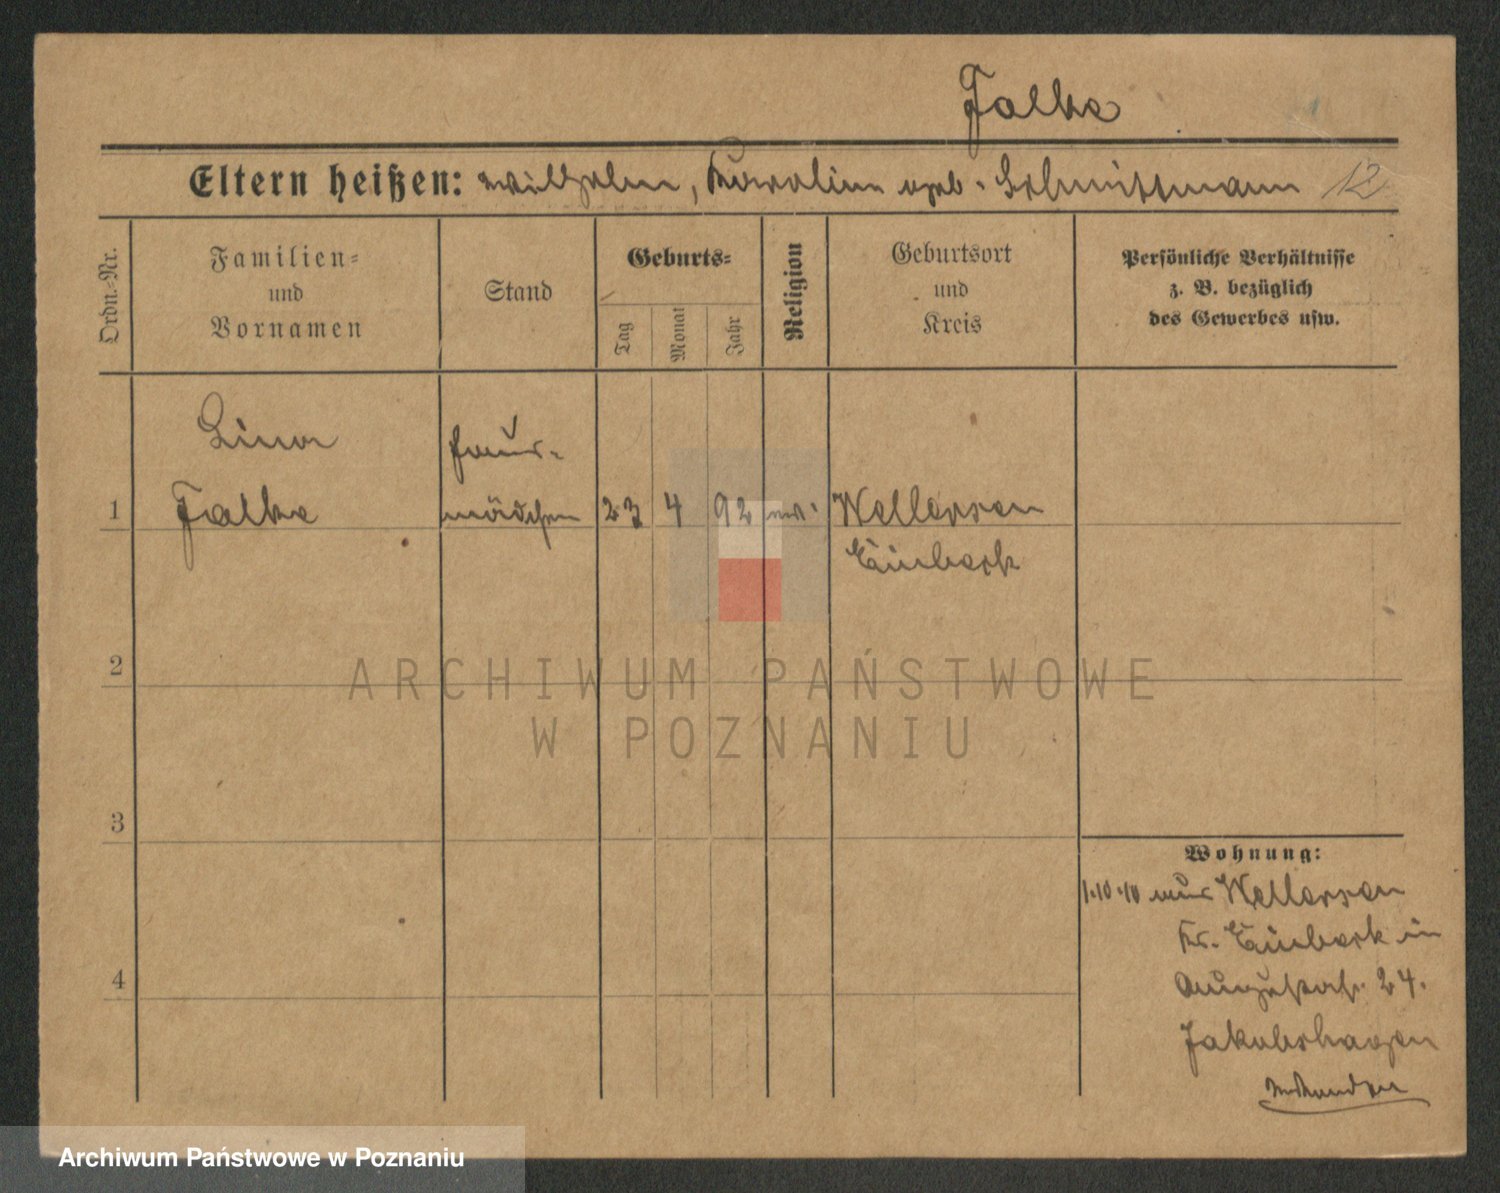 Falke
Eltern heißen: Wilhelm, Karoline geb. Schnittmann 12
Ordn.-Nr.
Familien-
und
Vornamen
Stand
Geburts-
Tag
Monat
Jahr
Religion
Geburtsort
und
Kreis
Persönliche Verhältnisse
z. B. bezüglich
des Gewerbes usw.
Lina
Falke
Haus-
mädchen
1
23 4 92 ev.
Wellersen
Einbeck
2
3
4
Wohnung:
1.10.10 aus Wellersen
Kr. Einbeck in
Augustastr. 24.
Jakobshagen
ARCHIWUM PAŃSTWOWE
W POZNANIU
Archiwum Państwowe w Poznaniu